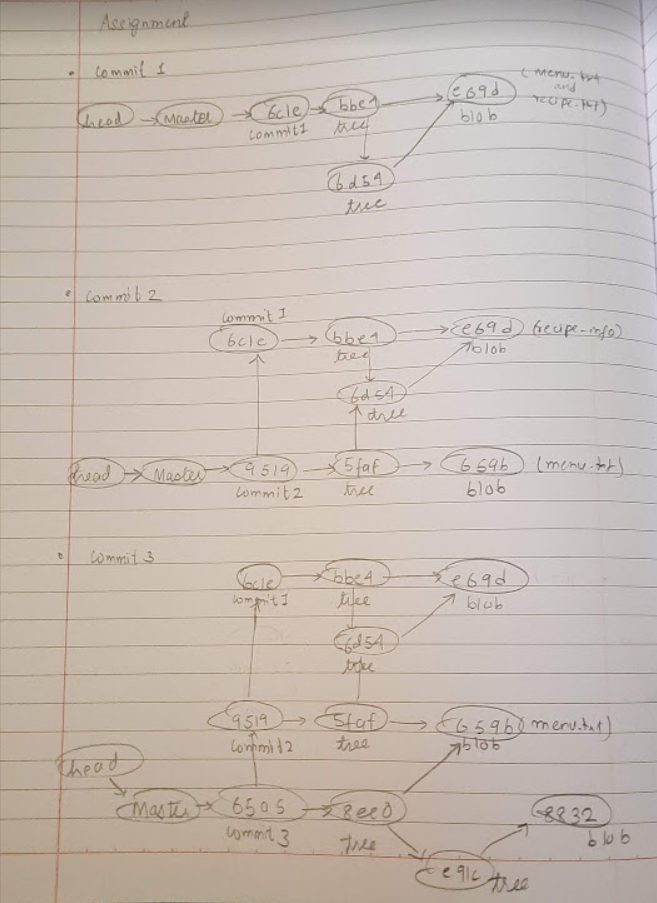 Assignment
• Commit 1
head Master 6c1e bbe4 e69d (menu.txt
and
recipe.txt)
commit1 tree blob
6d54
tree
• Commit 2
commit 1
6c1e bbe4 e69d (recipe-info)
tree blob
6d54
tree
head Master 9519 5faf 659b (menu.txt)
commit2 tree blob
• Commit 3
6c1e bbe4 e69d
commit1 tree blob
6d54
tree
9519 5faf 659b (menu.txt)
commit2 tree blob
head
Master 6505 8ee0 8832
commit 3 tree blob
e91c tree